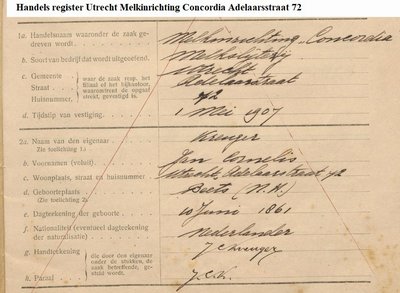 Handels register Utrecht Melkinrichting Concordia Adelaarsstraat 72
1a. Handelsnaam waaronder de zaak gedreven wordt. Melkinrichting „Concordia
b. Soort van bedrijf dat wordt uitgeoefend. Melkslijterij
c. Gemeente Utrecht
Straat Adelaarstraat
Huisnummer. 72
waar de zaak resp. het
filiaal of het bijkantoor,
waaromtrent de opgaaf
strekt, gevestigd is.
d. Tijdstip van vestiging. 1 Mei 1907
2a. Naam van den eigenaar Kreuger
(Zie toelichting 1)
b. Voornamen (voluit) Jan Cornelis
c. Woonplaats, straat en huisnummer Utrecht, Adelaarstraat 72
d. Geboorteplaats Beets (N.H.)
(Zie toelichting 2)
e. Dagteekening der geboorte 10 Juni 1861
f. Nationaliteit (eventueel dagteekening
der naturalisatie) Nederlander
g. Handteekening J C Kreuger
die door den eigenaar
onder de stukken, de
zaak betreffende, gesteld wordt.
h. Paraaf J.C.K.